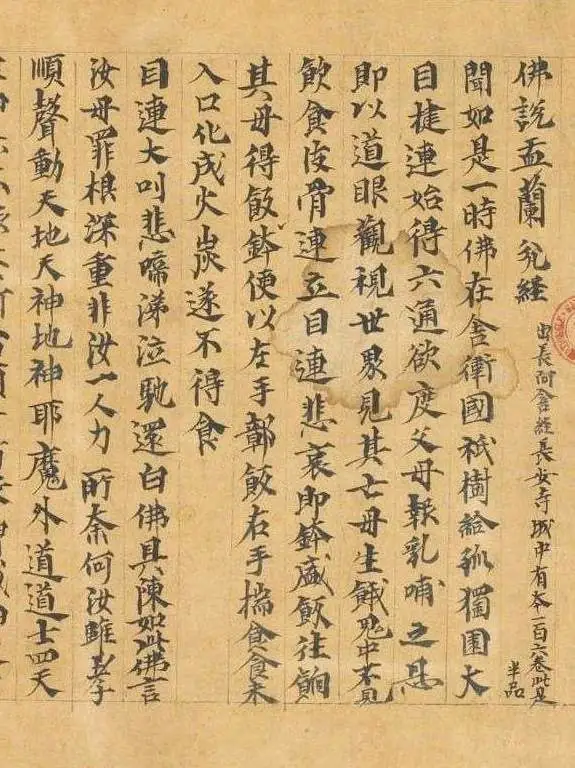 佛說盂蘭盆經
出長阿含經長安寺城中有本一百六卷此是
半品
聞如是一時佛在舍衛國祇樹給孤獨園大
目揵連始得六通欲度父母報乳哺之恩
即以道眼觀視世界見其亡母生餓鬼中不見
飲食皮骨連立目連悲哀即鉢盛飯往餉
其母得飯鉢便以左手鄣飯右手揣食食未
入口化成火炭遂不得食
目連大叫悲啼涕泣馳還白佛具陳如此佛言
汝母罪根深重非汝一人力所奈何汝雖孝
順聲動天地天神地神耶魔外道道士四天